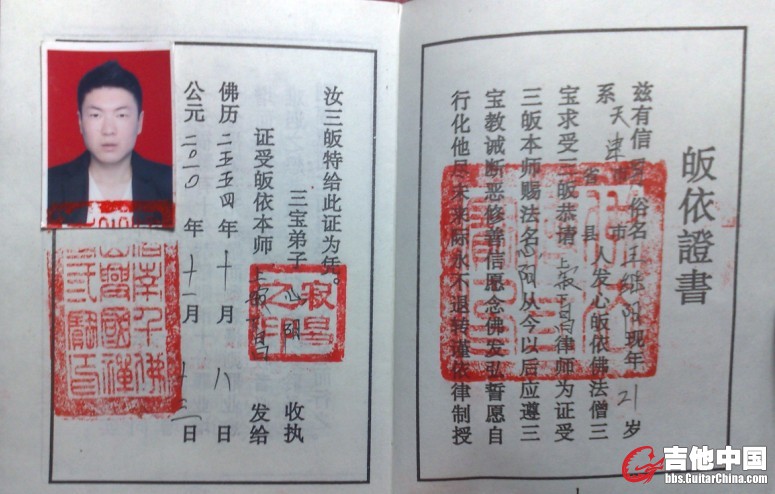 皈依證書
兹有信 俗名王 阳现年21岁
系天津市省市县人发心皈依佛法僧三
宝求受三皈恭请上寂下昌律师为证受
三皈本师赐法名心阳从今以后应遵三
宝教诫断恶修善信愿念佛发弘誓愿自
行化他尽未来际永不退转谨依律制授
汝三皈特给此证为凭。
三宝弟子心阳收执
证受皈依本师上寂下昌发给
佛历二五五四年十月八日
公元二〇一〇年十一月十 日
寂昌之印
吉他中国
bbs.GuitarChina.com